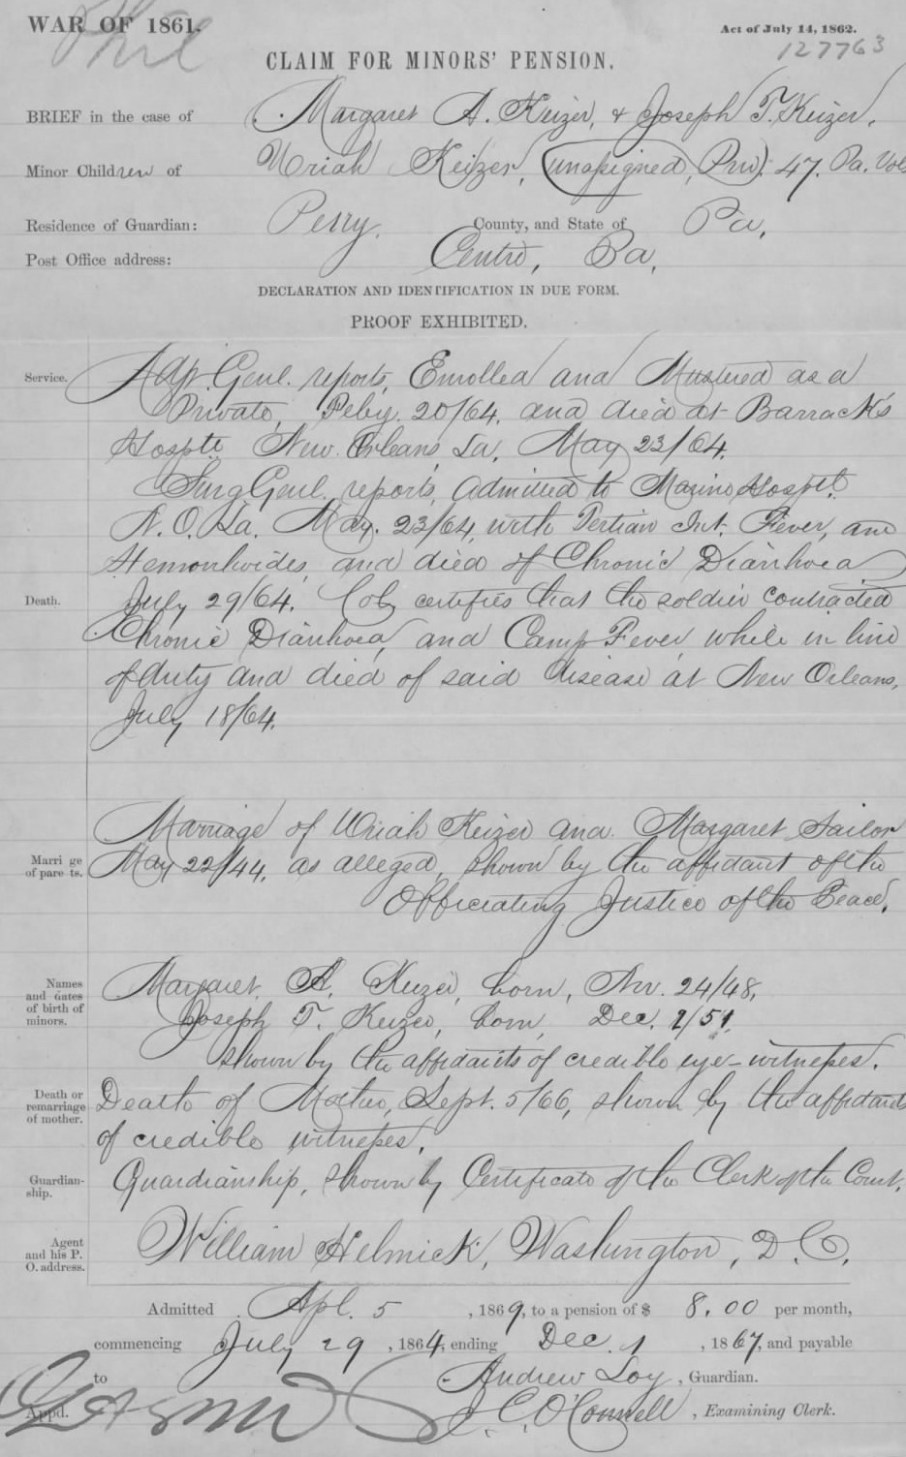 WAR OF 1861.
Phil
Act of July 14, 1862.
127763
CLAIM FOR MINORS' PENSION.
BRIEF in the case of Margaret A. Keizer, & Joseph T. Keizer,
Minor Children of Uriah Keizer, (unassigned, Priv). 47. Pa. Vols
Residence of Guardian: Perry. County, and State of Pa,
Post Office address: Centre, Pa,
DECLARATION AND IDENTIFICATION IN DUE FORM.
PROOF EXHIBITED.
Service. Adjt. Genl. reports, Enrolled and Mustered as a
Private, Feby. 20/64. and died at Barracks
Hosptl. New Orleans, La. May 23/64.
Surg Genl. reports, admitted to Marine Hosptl.
N. O. La. May. 23/64, with Tertian Int. Fever, and
Hemorrhoides, and died of Chronic Diarrhoea
Death. July 29/64. Col, certifies that the soldier contracted
Chronic Diarrhoea, and Camp Fever while in line
of duty and died of said disease at New Orleans,
July 18/64.
Marriage of Uriah Keizer and Margaret Sailor
Marri ge of pare ts. May 22/44, as alleged, shown by the affidavit of the
Officiating Justice of the Peace.
Names and dates of birth of minors. Margaret. A. Keizer, born, Nov. 24/48.
Joseph T. Keizer, born, Dec. 2/51.
shown by the affidavits of credible eye-witnesses.
Death or remarriage of mother. Death of Mother, Sept. 5/66, shown by the affidavits
of credible witnesses.
Guardian-ship. Guardianship, shown by Certificate of the Clerk of the Court.
Agent and his P. O. address. William Helmick, Washington, D.C.
Admitted Apl. 5, 1869, to a pension of $ 8.00 per month,
commencing July 29, 1864, ending Dec. 1, 1867, and payable
to Andrew Loy, Guardian.
Appd. J. C. O'Connell, Examining Clerk.